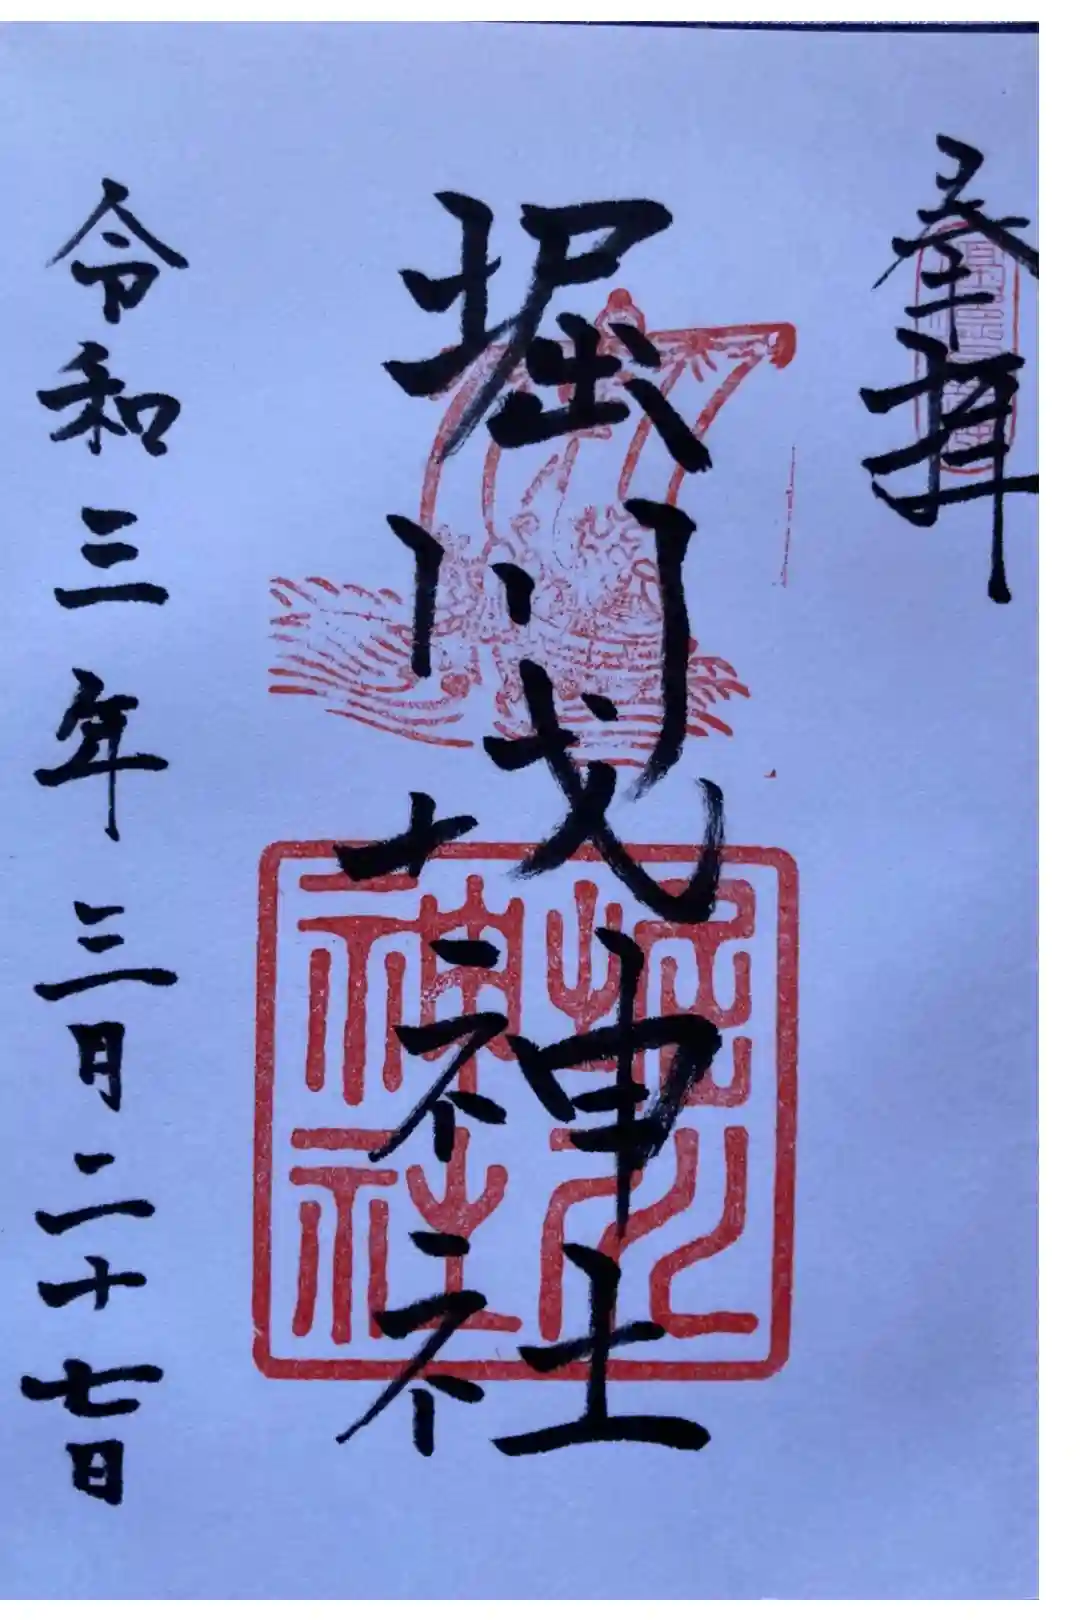 奉拝
堀川戎神社
堀川
神社
令和三年三月二十七日